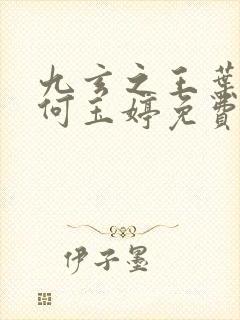 九玄之王葉
何玉婷免費
伊子墨